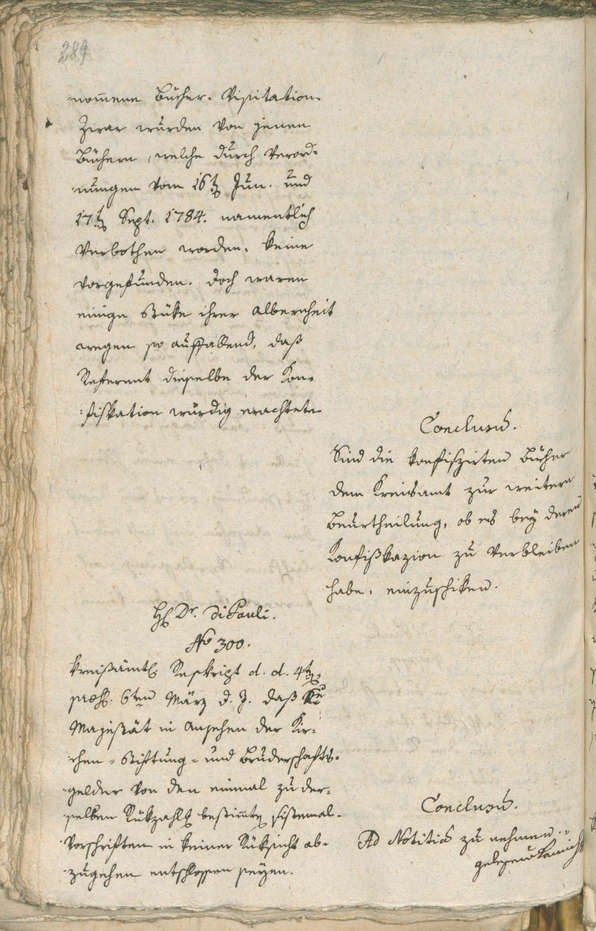 289
nommene Bücher-Visitation.
Zwar wurden von jenen
Büchern, welche durch Verord-
nungen vom 16t Jun. und
17t Sept. 1784. namentlich
Verbothen worden, keine
vorgefunden. Doch waren
einige Stüke ihrer Albernheit
wegen so auffallend, daß
Referent dieselbe der Kon-
fiskation würdig erachtete
Conclusū.
Sind die konfiszirten Bücher
dem Kreisamt zur weitern
Beurtheilung, ob es bey deren
Konfiskazion zu verbleiben
habe, einzuschiken.
H Dr. di Pauli.
No 300.
kreisämtl Reskript d. d. 4t
praes. 6ten März d. J. daß
Majestät in Ansehen der Kir-
chen-Stiftung- und Bruderschafts-
gelder von den einmal zu der-
selben Rükzahlg bestimmt sistemal-
Vorschriften in keiner Rüksicht ab-
zugehen entschlossen seyen.
Conclusū.
Ad Notitiā zu nehmen